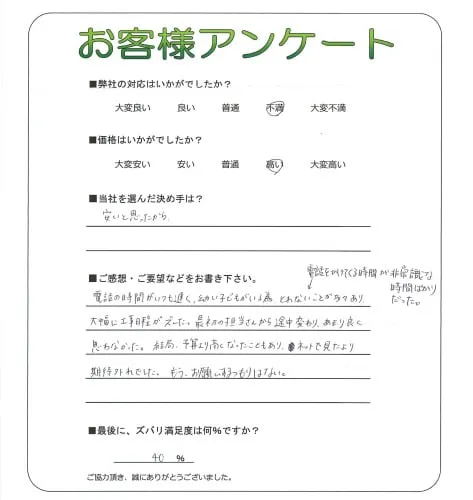 お客様アンケート
■弊社の対応はいかがでしたか？
大変良い　良い　普通　不満　大変不満
■価格はいかがでしたか？
大変安い　安い　普通　高い　大変高い
■当社を選んだ決め手は？
安いと思ったから。
■ご感想・ご要望などをお書き下さい。
電話をかけてくる時間が非常識な
時間ばかり
だった。
電話の時間がいつも遅く、幼い子どもがいる為 とれないことが多々あり、
大幅に工事日程がズレた。最初の担当さんから途中変わり、あまり良く
思わなかった。結局、予算より高くなったこともあり、ネットで見たより
期待外れでした。もう、お願いするつもりはない。
■最後に、ズバリ満足度は何％ですか？
40 ％
ご協力頂き、誠にありがとうございました。